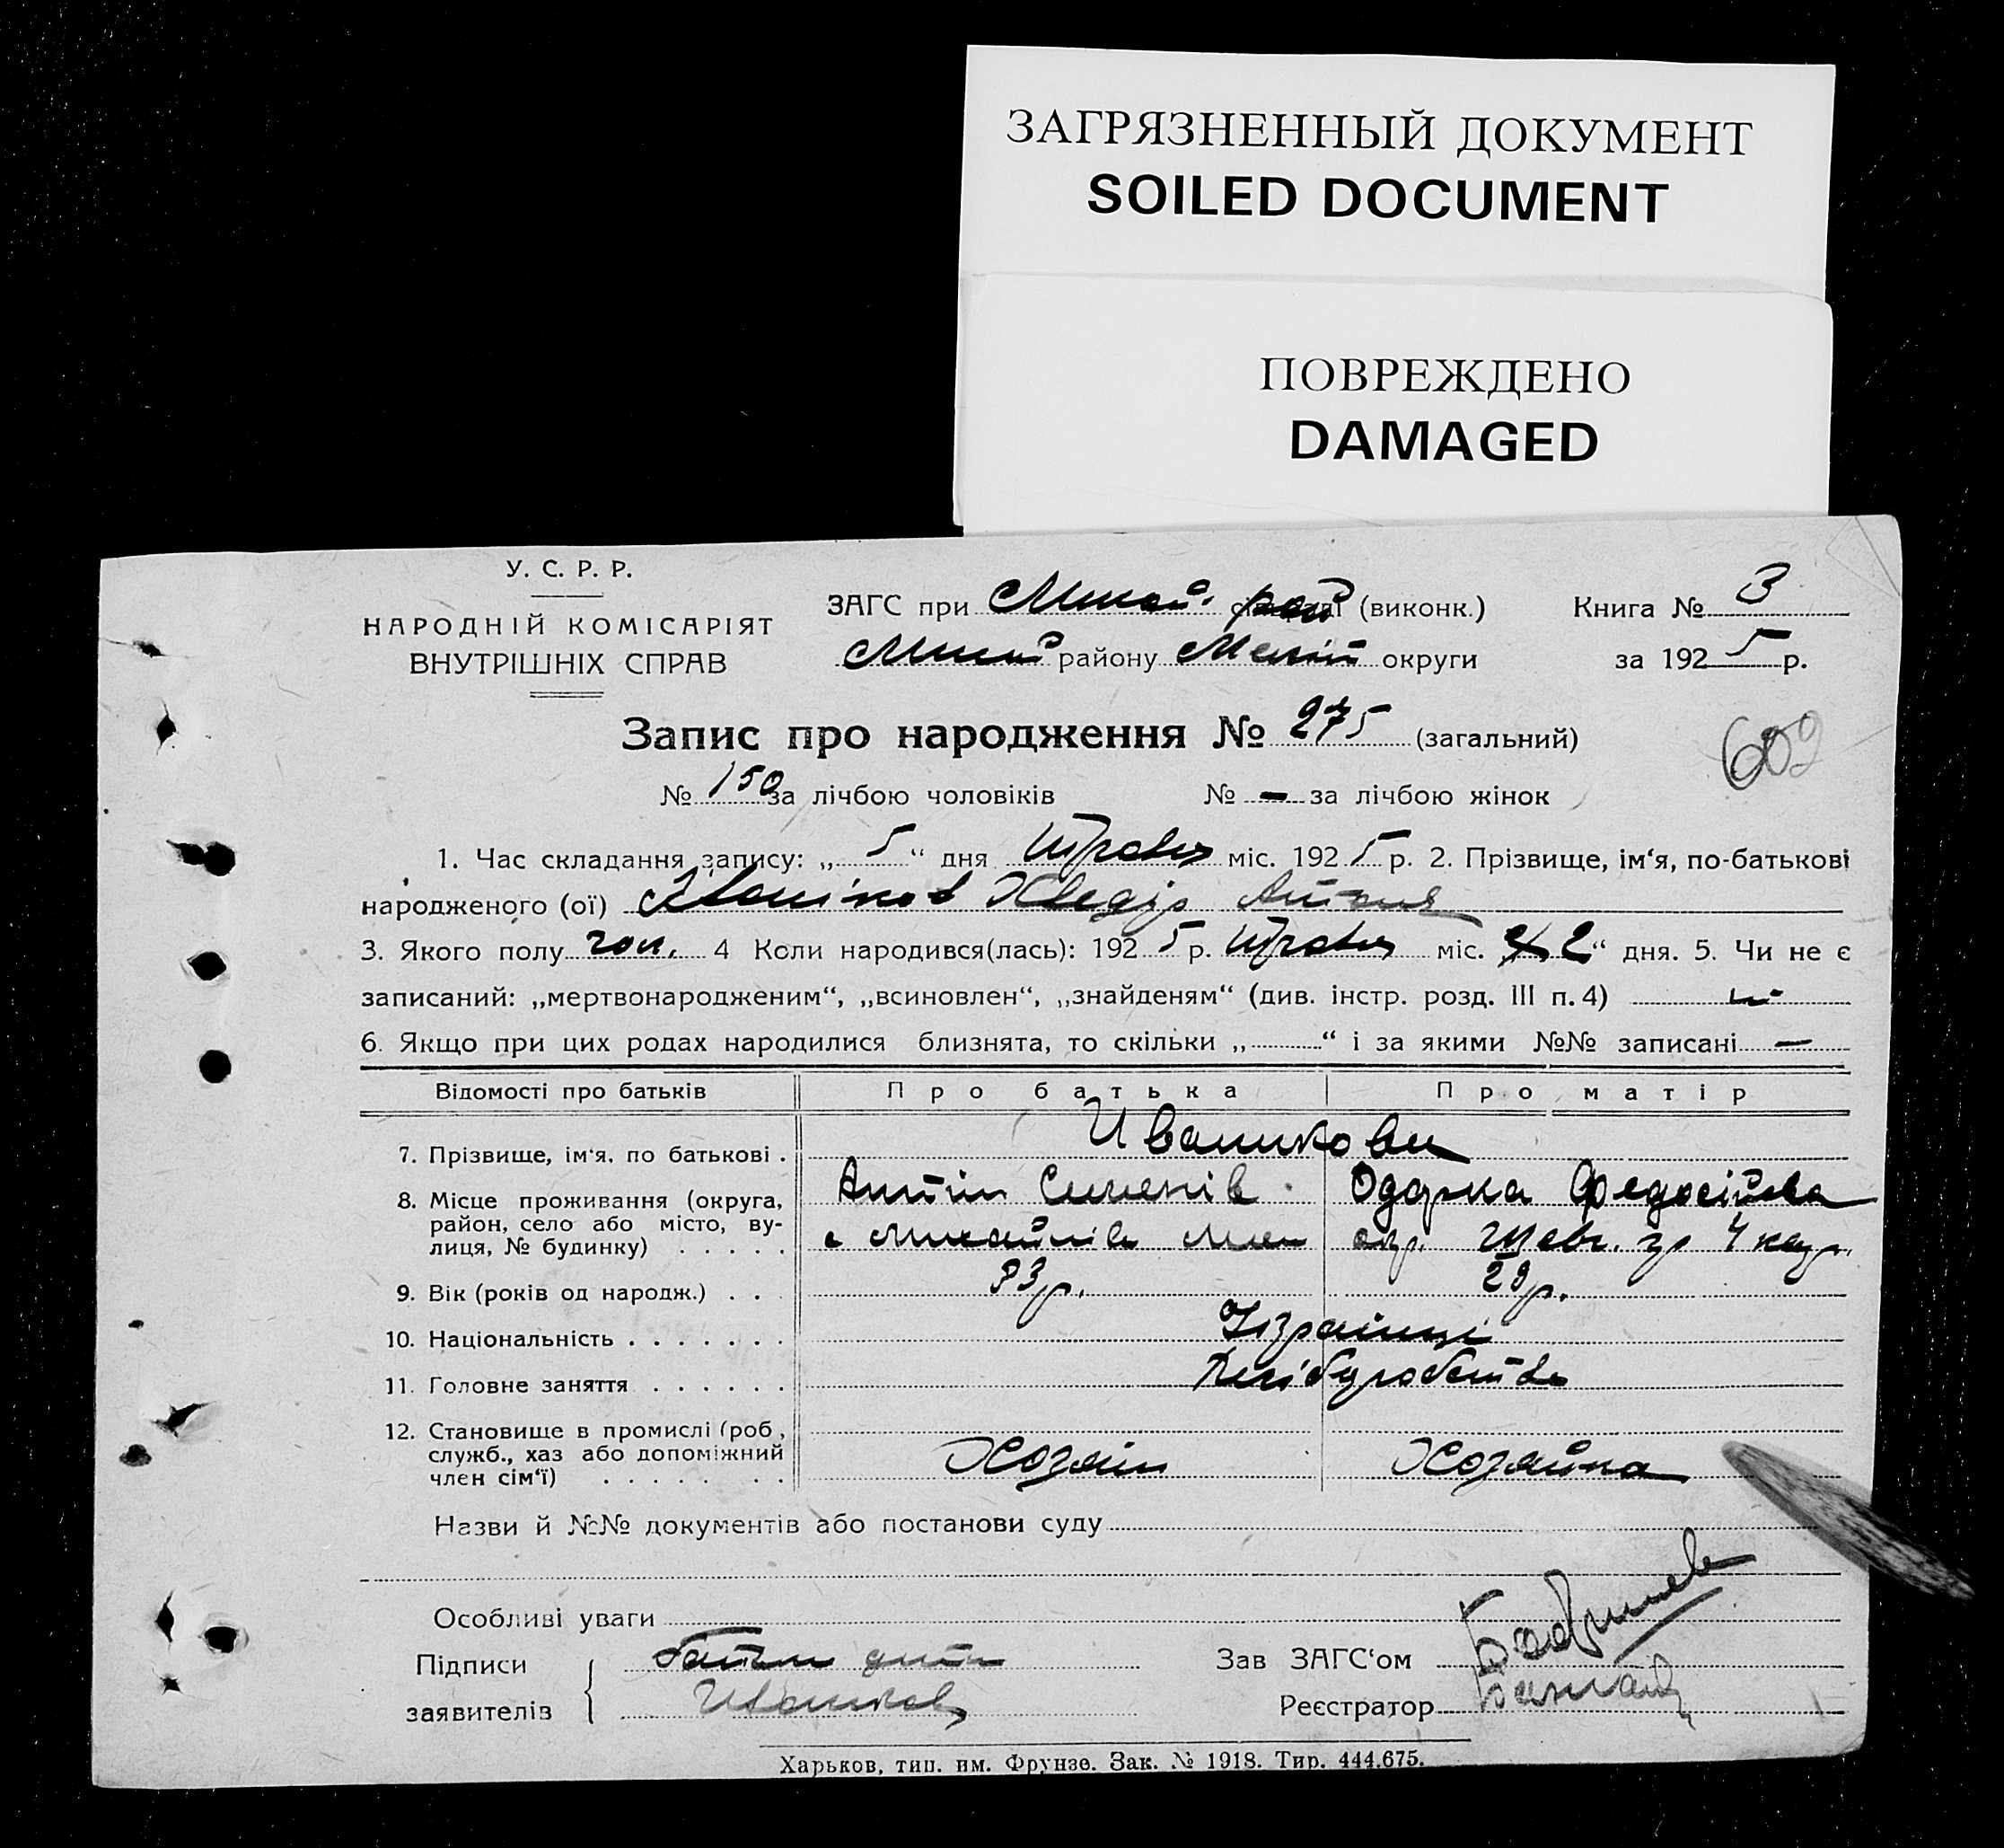 ЗАГРЯЗНЕННЫЙ ДОКУМЕНТ
SOILED DOCUMENT
ПОВРЕЖДЕНО
DAMAGED
У. С. Р. Р.
НАРОДНІЙ КОМІСАРІЯТ
ВНУТРІШНІХ СПРАВ
ЗАГС при рай (виконк.)
району округи
Книга № 3
за 1925 р.
Запис про народження № 275 (загальний)
609
№ 150 за лічбою чоловіків № — за лічбою жінок
1. Час складання запису: „ 5 “ дня Травня міс. 1925 р. 2. Прізвище, ім‘я, по-батькові
народженого (ої) Івашков Хведір Антонів
3. Якого полу чол. 4 Коли народився(лась): 1925 р. Травня міс. 2 “ дня. 5. Чи не є
записаний: „мертвонародженим“, „всиновлен“, „знайденям“ (див. інстр. розд. III п. 4)
6. Якщо при цих родах народилися близнята, то скільки „ “ і за якими №№ записані —
Відомості про батьків Про батька Про матір
7. Прізвище, ім‘я, по батькові . Ивашкови
Антін Семенів Одарка Федосіївна
8. Місце проживання (округа,
район, село або місто, ву-
лиця, № будинку) . . . . .
9. Вік (років од народж.) . . . 33 р. 29 р.
10. Національність . . . . . . . Українці
11. Головне заняття . . . . . . Хліборобство
12. Становище в промислі (роб,
служб., хаз або допоміжний
член сім‘ї) . . . . . . . Хозяїн Хозяйка
Назви й №№ документів або постанови суду
Особливі уваги
Підписи
заявителів
Ивашков
Зав ЗАГС‘ом
Реєстратор
Харьков, тип. им. Фрунзе. Зак. № 1918. Тир. 444.675.